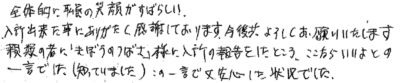 全体的に皆様の笑顔がすばらしい。
入所出来た事にありがたく感謝しております。今後共、よろしくお願いいたします
親類の者に「きぼうのつばさ」様に入所の報告をしたところ、ここならいいよとの
一言でした(知っていました)この一言で又安心した状況でした。